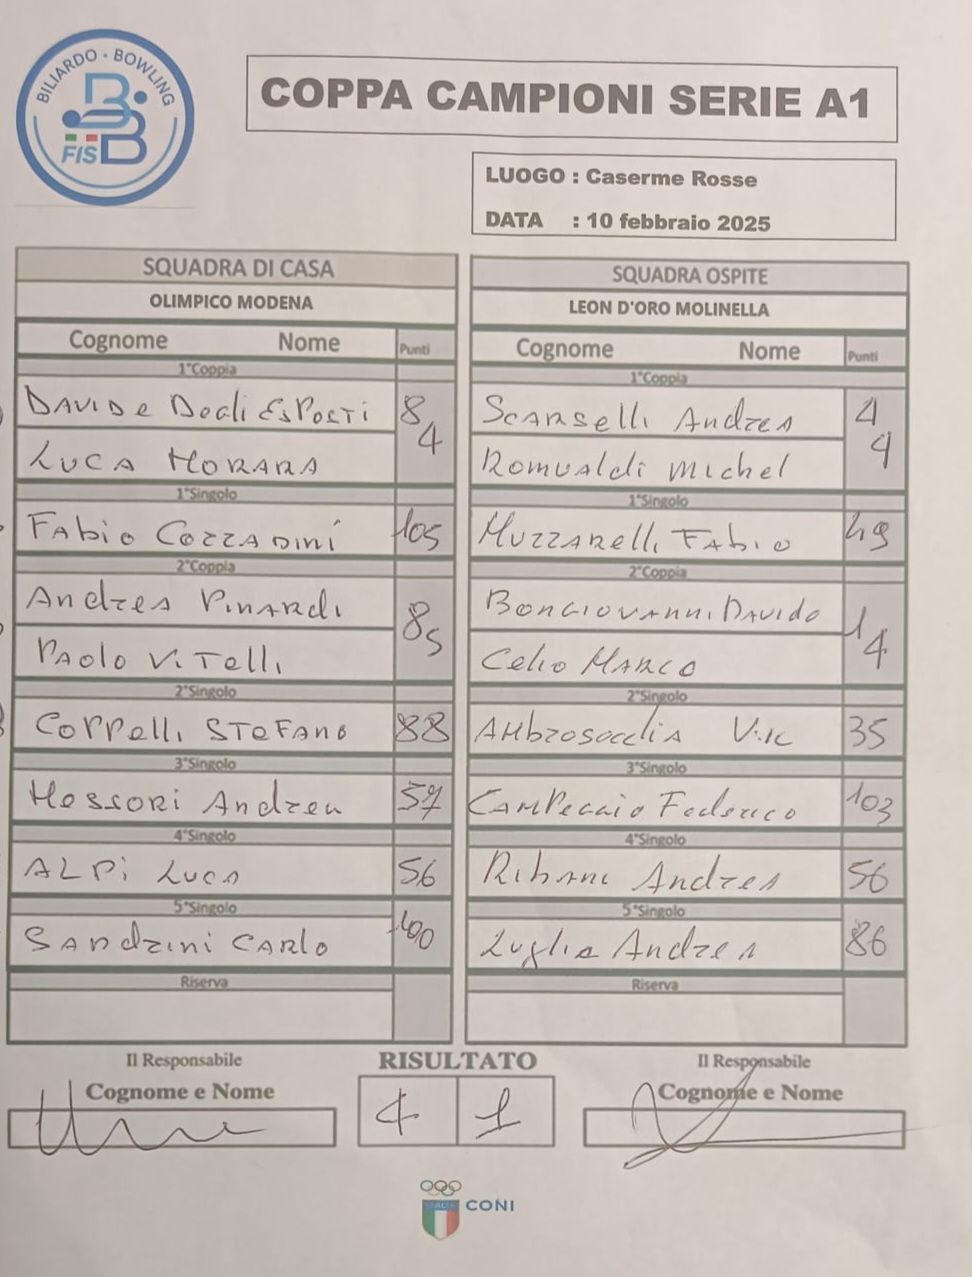 BILIARDO - BOWLING
FISBB
COPPA CAMPIONI SERIE A1
LUOGO : Caserme Rosse
DATA : 10 febbraio 2025
SQUADRA DI CASA
OLIMPICO MODENA
Cognome Nome Punti
1°Coppia
DAVIDE Degli EsPosti 84
LUCA MORARA
1°Singolo
FAbio COZZADINI 105
2°Coppia
Andrea PINARdi 85
PAOLO VITELLI
2°Singolo
COPPELLI STEFANO 88
3°Singolo
MESSORI Andrea 57
4°Singolo
ALPI LUCA 56
5°Singolo
SANdrini CARLO 100
Riserva
SQUADRA OSPITE
LEON D'ORO MOLINELLA
Cognome Nome Punti
1°Coppia
SCARSELLI Andrea 44
ROMUALdi Michel
1°Singolo
MUZZARELLI FAbio 49
2°Coppia
BONGIOVANNI DAVIDE 14
Celio MARCO
2°Singolo
AMbrosecchia 35
3°Singolo
CAMPEGGIO Federico 103
4°Singolo
Ribani Andrea 56
5°Singolo
Luglia Andrea 86
Riserva
Il Responsabile
Cognome e Nome
RISULTATO
4 1
Il Responsabile
Cognome e Nome
ITALIA
CONI